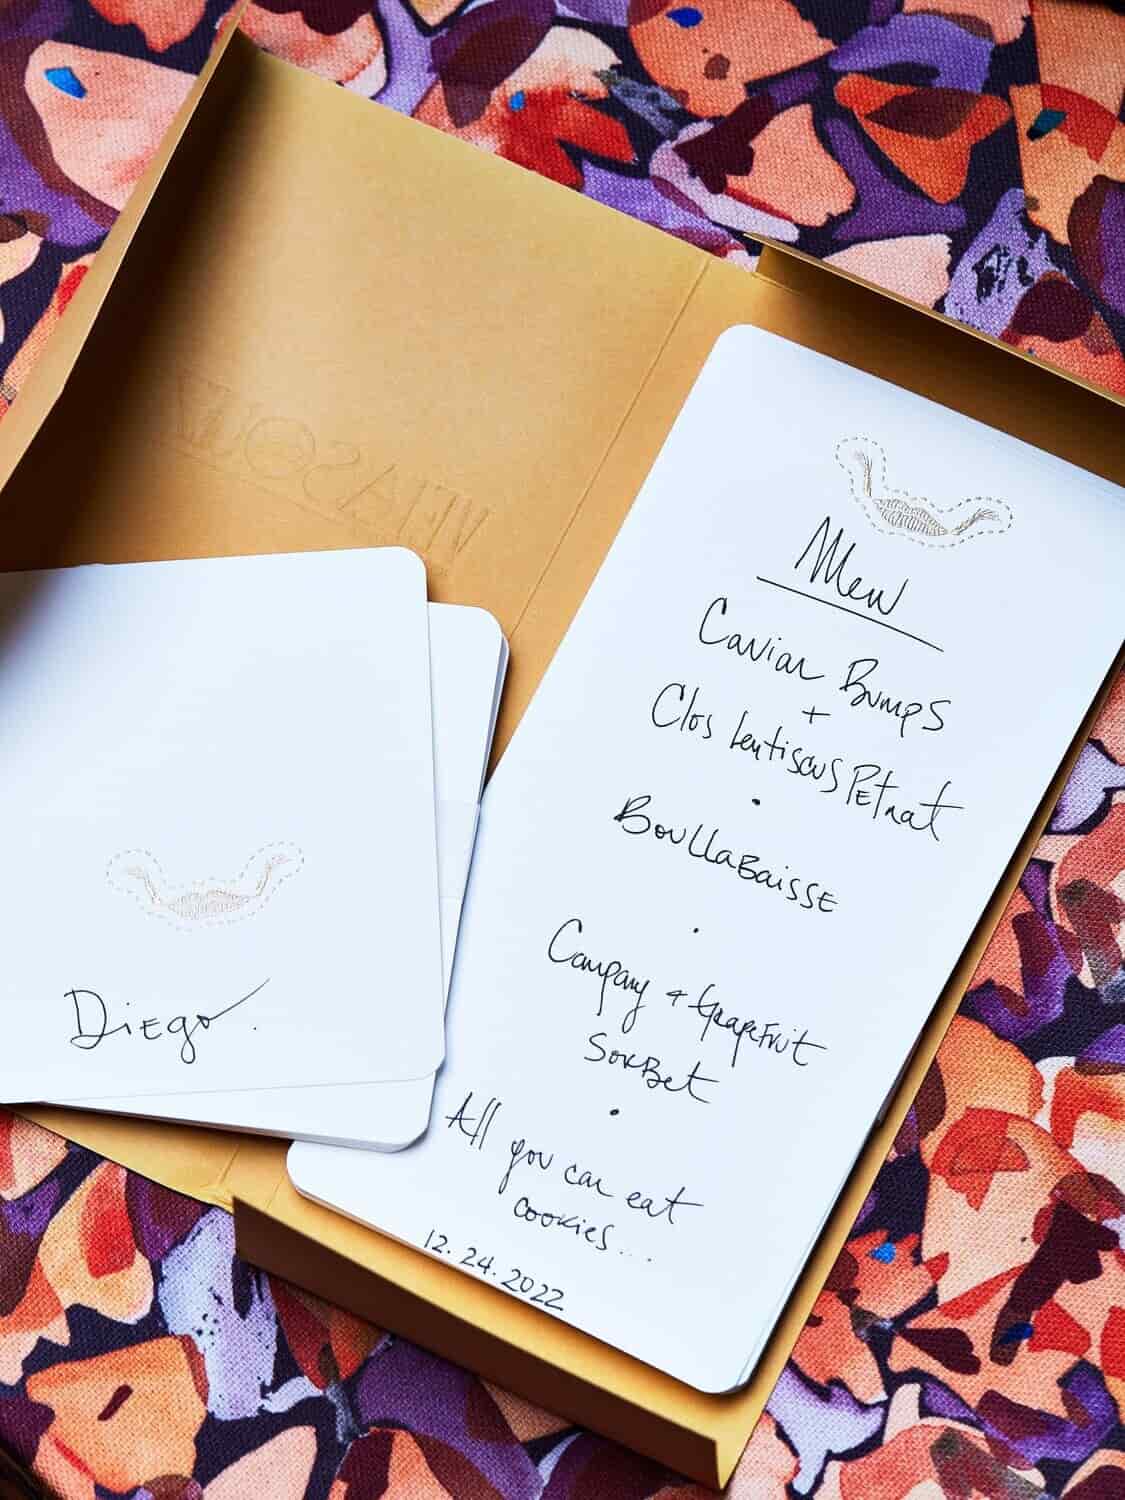 Menu
Caviar Bumps
+
Clos Lentiscus PEtnat
•
BouLLaBaissE
•
Campary + GrapeFruit
SorBet
•
All you can eat
cookies...
12.24.2022
DiEgo.